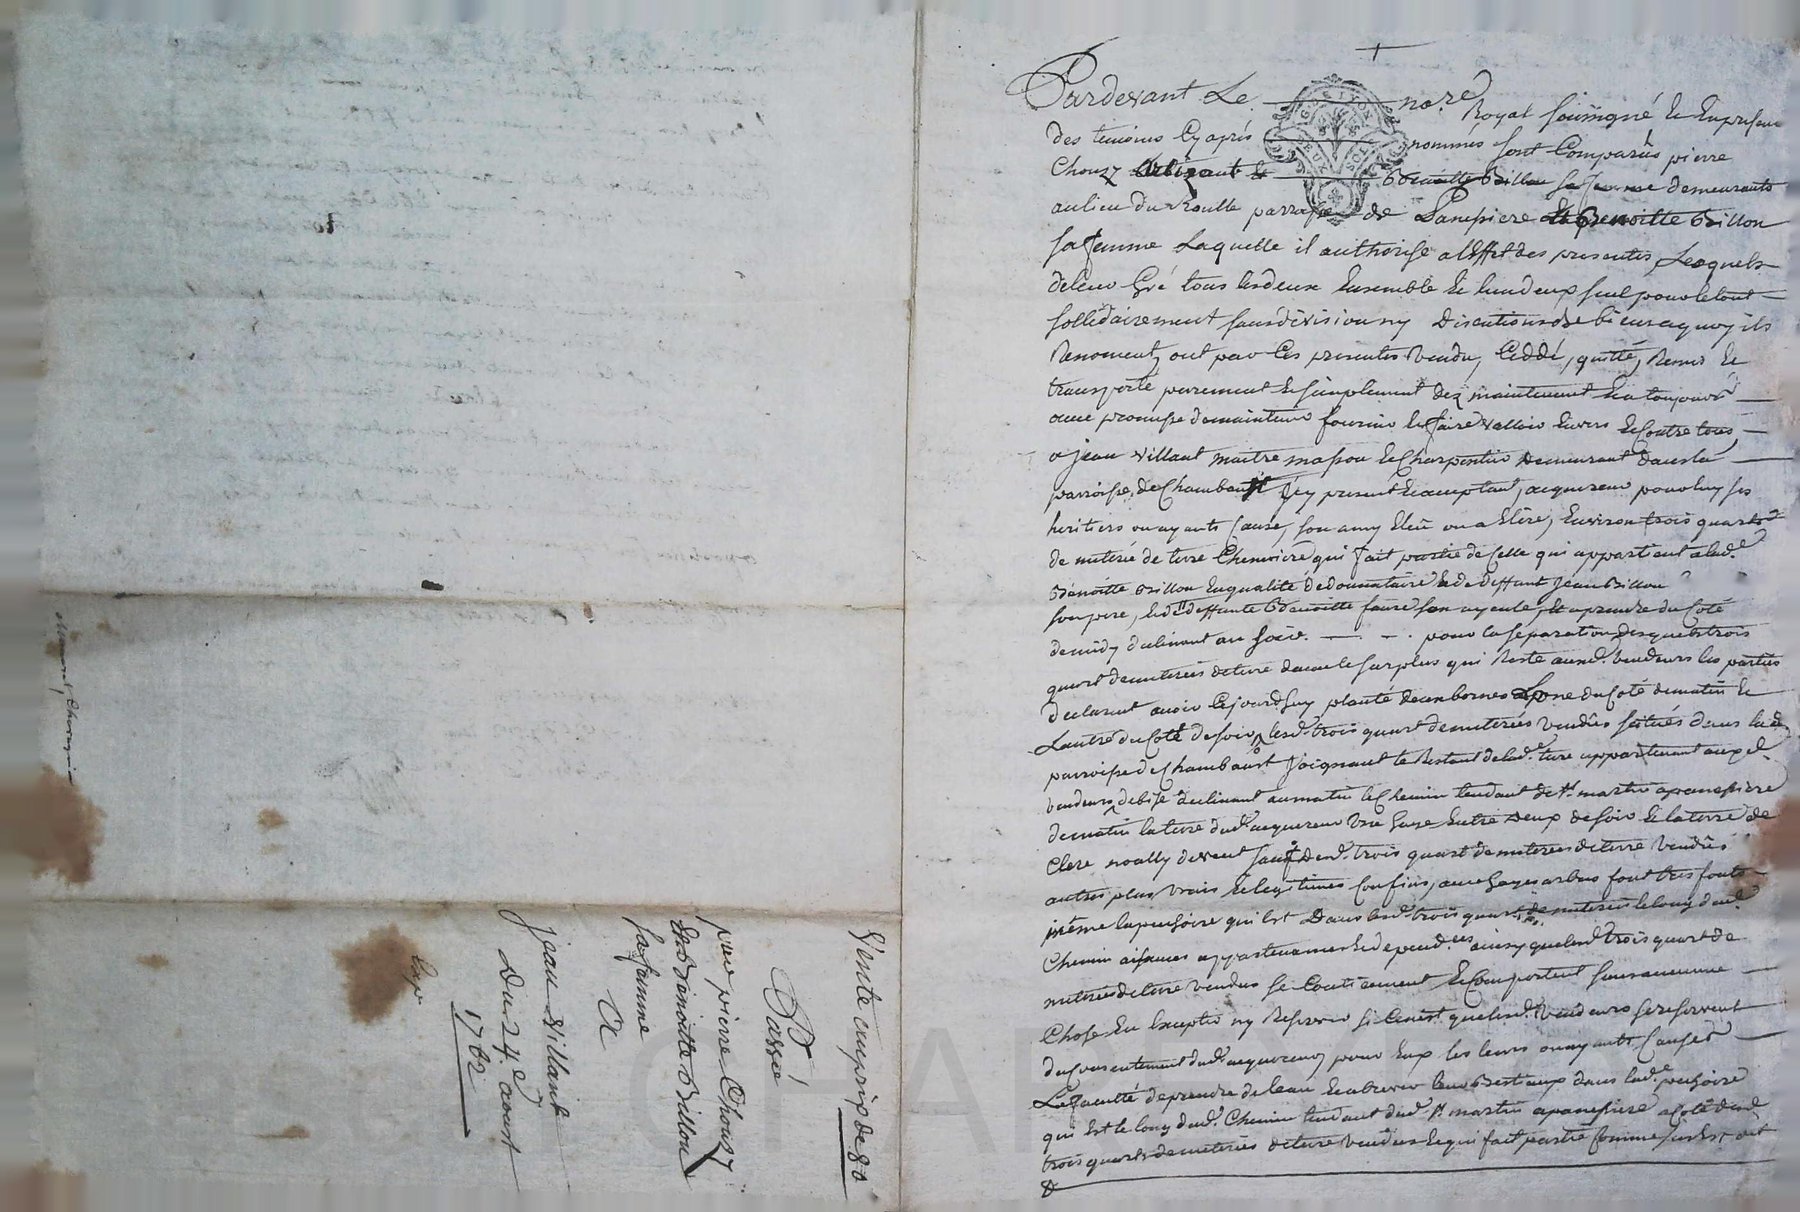 Pardevant Le no.re Royal soussigné Et En presence
des temoins Cy aprés nommés sont Comparûs pierre
Chouzy Benoitte Brillon sa femme demeurants
au lieu du Roulle parroisse de Panissiere Et Benoitte Brillon
sa femme Laquelle il authorise a l'Effet des presentes, Lesquels
de leur Gré tous les deux Ensemble Et lun deux seul pour le tout
sollidairement sans division ny discution de biens a quoy ils
Renoncent, ont par Ces presentes Vendu, Ceddé, quitté, Remis Et
transporté purement Et simplement dez maintenant Et a toujours
avec promesse de maintenir fournir Et faire valloir Envers Et Contre tous
a jean villant maitre masson Et Charpentier demeurant dans la
parroisse de Chambaust jcy present Et acceptant, acquereur pour luy ses
heritiers ou ayants Cause, son amy Eleû ou a Elire, Environ trois quarts
de meterée de terre Cheneviere qui fait partie de Celle qui appartient a lad.e
Benoitte Brillon En qualité de donnataire de deffunt jean Brillon
son pere, Et de deffunte Benoitte faure son ayeule, Et a prendre du Coté
de midy declinant au soir. pour la separation desquels trois
quart de meterées de terre davec le surplus qui Reste auxd. vendeurs les parties
declarent avoir Cejourdhuy planté deux bornes L'une du Coté de matin Et
L'autre du Coté de soir, lesd. trois quart de meterées vendûs scitués dans lad.
parroisse de Chambaust joignant le Restant de lad.e terre appartenant auxd.
vendeurs de bize declinant au matin le Chemin tendant de St. martin a panissiere
de matin la terre dud. acquereur une haye Entre deux de soir Et la terre de
Clere noally de vent sauf desd. trois quart de meterées de terre vendûs
autres plus vrais Et legitimes Confins, avec hayes arbres font tres fonts
même la peschoire qui Est dans lesd. trois quart de meterées le long dud.
Chemin aisances appartenances Et dependces ainsy que lesd. trois quart de
meterées de terre vendus se Contiennent Et Comportent sans aucune
Chose En Excepter ny Reserver si Ce n'est que lesd. vendeurs se reservent
du Consentement dud. acquereur, pour Eux les leurs ou ayants Causes
La faculté de prendre de leau Et abrever leurs Bestiaux dans lad.e peschoire
qui Est le long dud. Chemin tendant dud. St. martin a panissiere a Coté desd.
trois quarts de meterées de terre vendus Et qui fait partie Comme jl Est dit
Vente au prix de 80
Passée
par pierre Chouzy
Et Benoitte Brillon
sa femme
A
jean villant
Du 24e aoust
1782